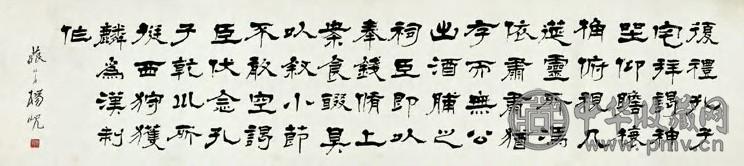 復禮孔子
宅拜謁神
坐仰瞻榱
桷俯視几
筵靈所馮
依肅肅猶
存而無公
出酒脯之
祠臣即以
奉錢脩上
案食醊具
以敘小節
不敢空謁
臣伏念孔
子乾巛所
挺西狩獲
麟為漢制
作
藐翁楊峴
中华收藏网